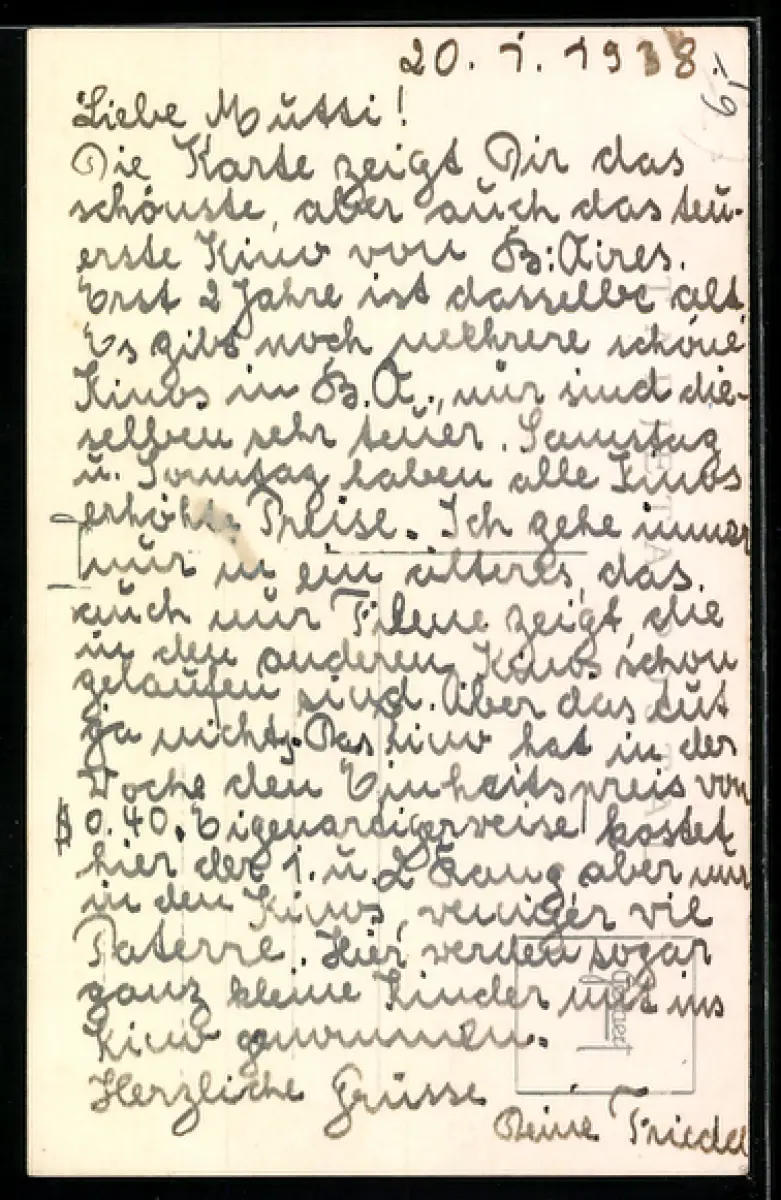 20. 1. 1938
Liebe Mutti!
Die Karte zeigt Dir das
schönste, aber auch das teu-
erste Kino von B:Aires.
Erst 2 Jahre ist dasselbe alt.
Es gibt noch mehrere schöne
Kinos in B.A., nur sind die-
selben sehr teuer. Samstag
u. Sonntag haben alle Kinos
erhöhte Preise. Ich gehe immer
nur in ein älteres, das
auch nur Filme zeigt, die
in den anderen Kinos schon
gelaufen sind. Aber das tut
ja nichts. Das Kino hat in der
Woche den Einheitspreis von
$ 0.40. Eigenardigerweise kostet
hier der 1. u. 2 Rang aber nur
in den Kinos, weniger wie
Paterre. Hier werden sogar
ganz kleine Kinder mit ins
Kino genommen.
Herzliche Grüsse
Deine Friedel